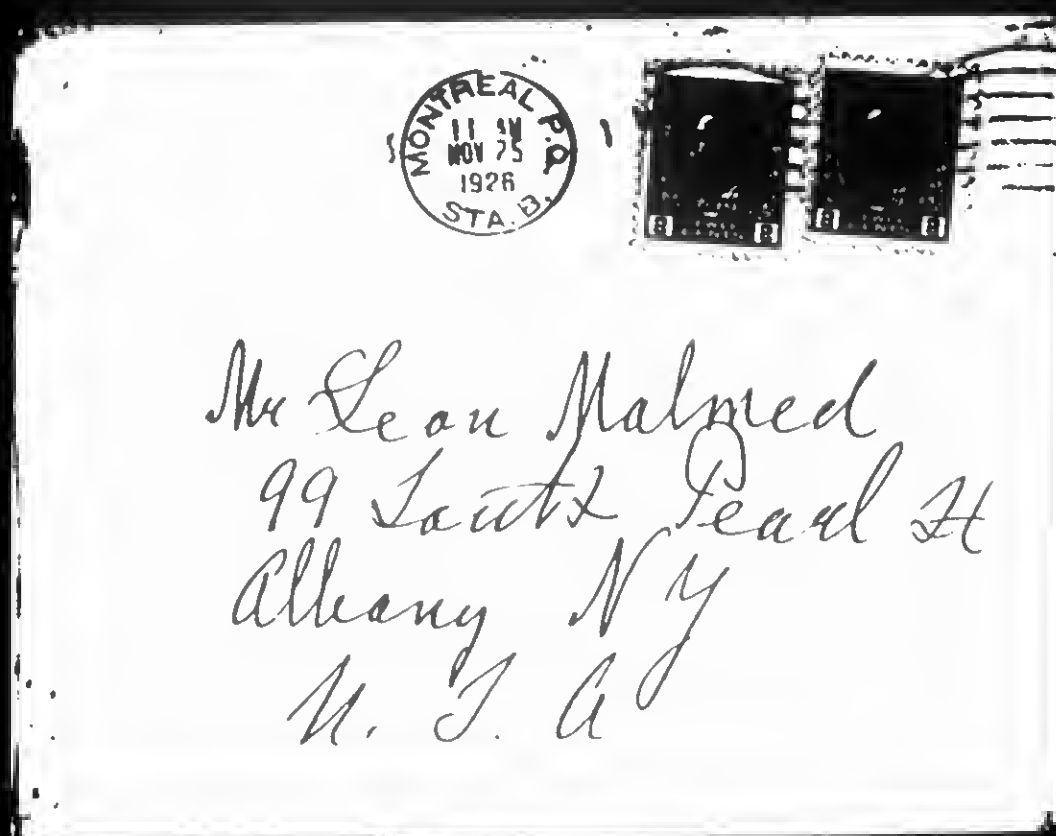 MONTREAL P.Q.
11 AM
NOV 25
1926
STA. B.
8 8
CENTS
8 8
CENTS
Mr Leon Malmed
99 South Pearl St
Albany NY
U. S. A